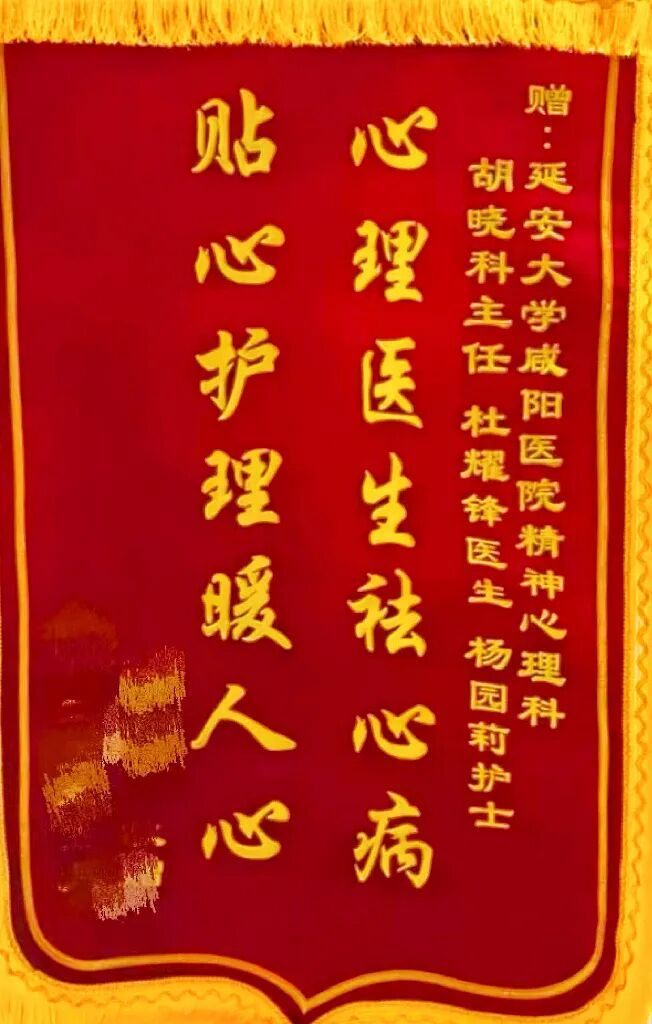 赠：延安大学咸阳医院精神心理科
胡晓科主任 杜耀锋医生 杨园莉护士
心理医生祛心病
贴心护理暖人心